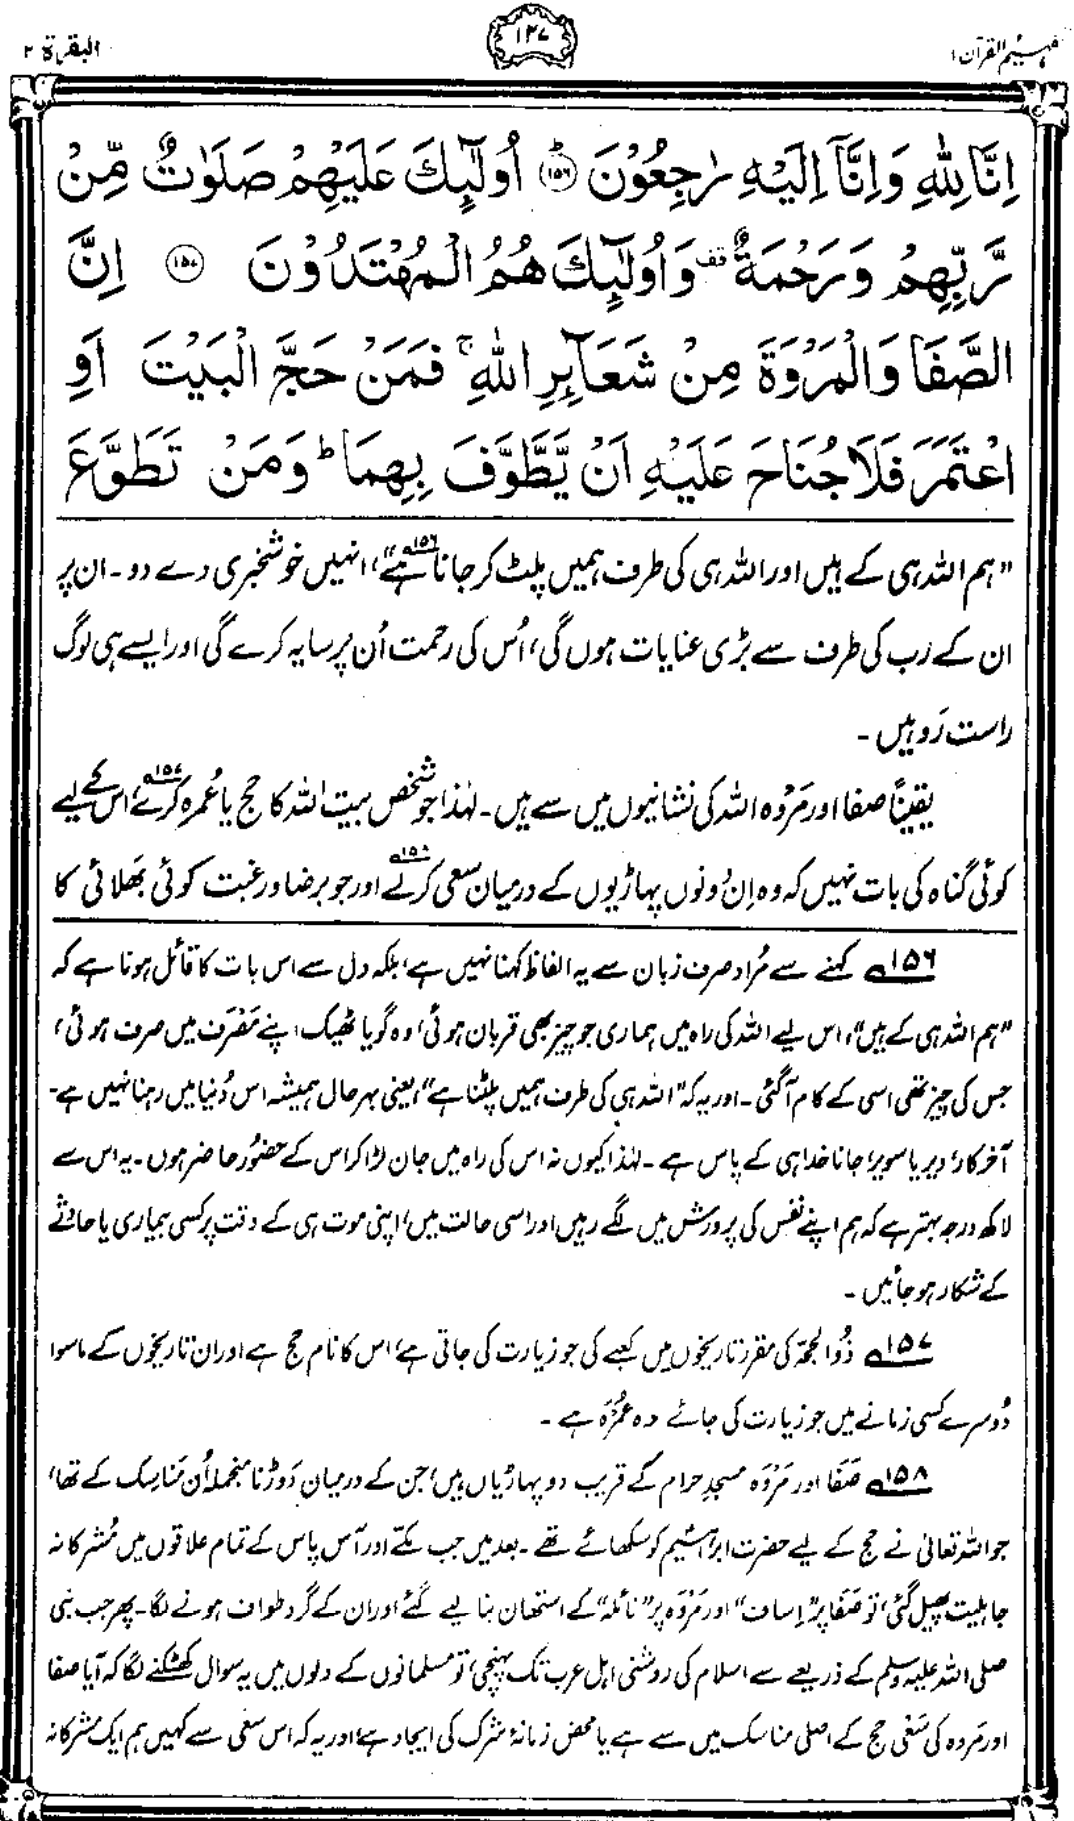 تفہیم القرآن ۱
۱۲۷
البقرۃ ۲
اِنَّا لِلّٰهِ وَاِنَّاۤ اِلَيْهِ رٰجِعُوْنَ ؕ﴿۱۵۶﴾ اُولٰٓئِكَ عَلَيْهِمْ صَلَوٰتٌ مِّنْ
رَّبِّهِمْ وَرَحْمَةٌ ۫ قف وَاُولٰٓئِكَ هُمُ الْمُهْتَدُوْنَ ﴿۱۵۷﴾ اِنَّ
الصَّفَا وَالْمَرْوَةَ مِنْ شَعَآئِرِ اللّٰهِ ۚ فَمَنْ حَجَّ الْبَيْتَ اَوِ
اعْتَمَرَ فَلَا جُنَاحَ عَلَيْهِ اَنْ يَّطَّوَّفَ بِهِمَا ؕ وَمَنْ تَطَوَّعَ
”ہم اللہ ہی کے ہیں اور اللہ ہی کی طرف ہمیں پلٹ کر جانا ہے“۱۵۶، انہیں خوشخبری دے دو۔ ان پر
ان کے رب کی طرف سے بڑی عنایات ہوں گی، اُس کی رحمت اُن پر سایہ کرے گی اور ایسے ہی لوگ
راست رَو ہیں۔
یقیناً صفا اور مَرْوَہ اللہ کی نشانیوں میں سے ہیں۔ لہٰذا جو شخص بیت اللہ کا حج یا عُمرہ کرے۱۵۷، اس کے لیے
کوئی گناہ کی بات نہیں کہ وہ اِن دونوں پہاڑیوں کے درمیان سعی کرلے۱۵۸ اور جو برضا و رغبت کوئی بھَلائی کا
۱۵۶ کہنے سے مُراد صرف زبان سے یہ الفاظ کہنا نہیں ہے، بلکہ دل سے اس بات کا قائل ہونا ہے کہ
”ہم اللہ ہی کے ہیں“، اس لیے اللہ کی راہ میں ہماری جو چیز بھی قربان ہوئی، وہ گویا ٹھیک اپنے مَصْرَف میں صرف ہوئی،
جس کی چیز تھی اسی کے کام آگئی۔ اور یہ کہ ”اللہ ہی کی طرف ہمیں پلٹنا ہے“، یعنی بہرحال ہمیشہ اس دُنیا میں رہنا نہیں ہے۔
آخرکار، دیر یا سویر، جانا خدا ہی کے پاس ہے۔ لہٰذا کیوں نہ اس کی راہ میں جان لڑا کر اس کے حضُور حاضر ہوں۔ یہ اس سے
لاکھ درجہ بہتر ہے کہ ہم اپنے نفس کی پرورش میں لگے رہیں اور اسی حالت میں، اپنی موت ہی کے وقت پر کسی بیماری یا حادثے
کے شکار ہو جائیں۔
۱۵۷ ذُوالحجّہ کی مقرر تاریخوں میں کعبے کی جو زیارت کی جاتی ہے، اس کا نام حج ہے اور ان تاریخوں کے ماسوا
دُوسرے کسی زمانے میں جو زیارت کی جائے وہ عُمْرَہ ہے۔
۱۵۸ صَفَا اور مَرْوَہ مسجدِ حرام کے قریب دو پہاڑیاں ہیں، جن کے درمیان دَوڑنا منجملہ اُن مَناسِک کے تھا،
جو اللہ تعالیٰ نے حج کے لیے حضرت ابراہیمؑ کو سکھائے تھے۔ بعد میں جب مکّے اور آس پاس کے تمام علاقوں میں مُشرکانہ
جاہلیت پھیل گئی، تو صَفَا پر ”اِساف“ اور مَرْوَہ پر ”نائلہ“ کے استھان بنا لیے گئے اور ان کے گرد طواف ہونے لگا۔ پھر جب نبی
صلی اللہ علیہ وسلم کے ذریعے سے اسلام کی روشنی اہلِ عرب تک پہنچی، تو مسلمانوں کے دلوں میں یہ سوال کھٹکنے لگا کہ آیا صفا
اور مَروہ کی سَعْی حج کے اصلی مناسک میں سے ہے یا محض زمانۂ شرک کی ایجاد ہے، اور یہ کہ اس سَعْی سے کہیں ہم ایک مشرکانہ